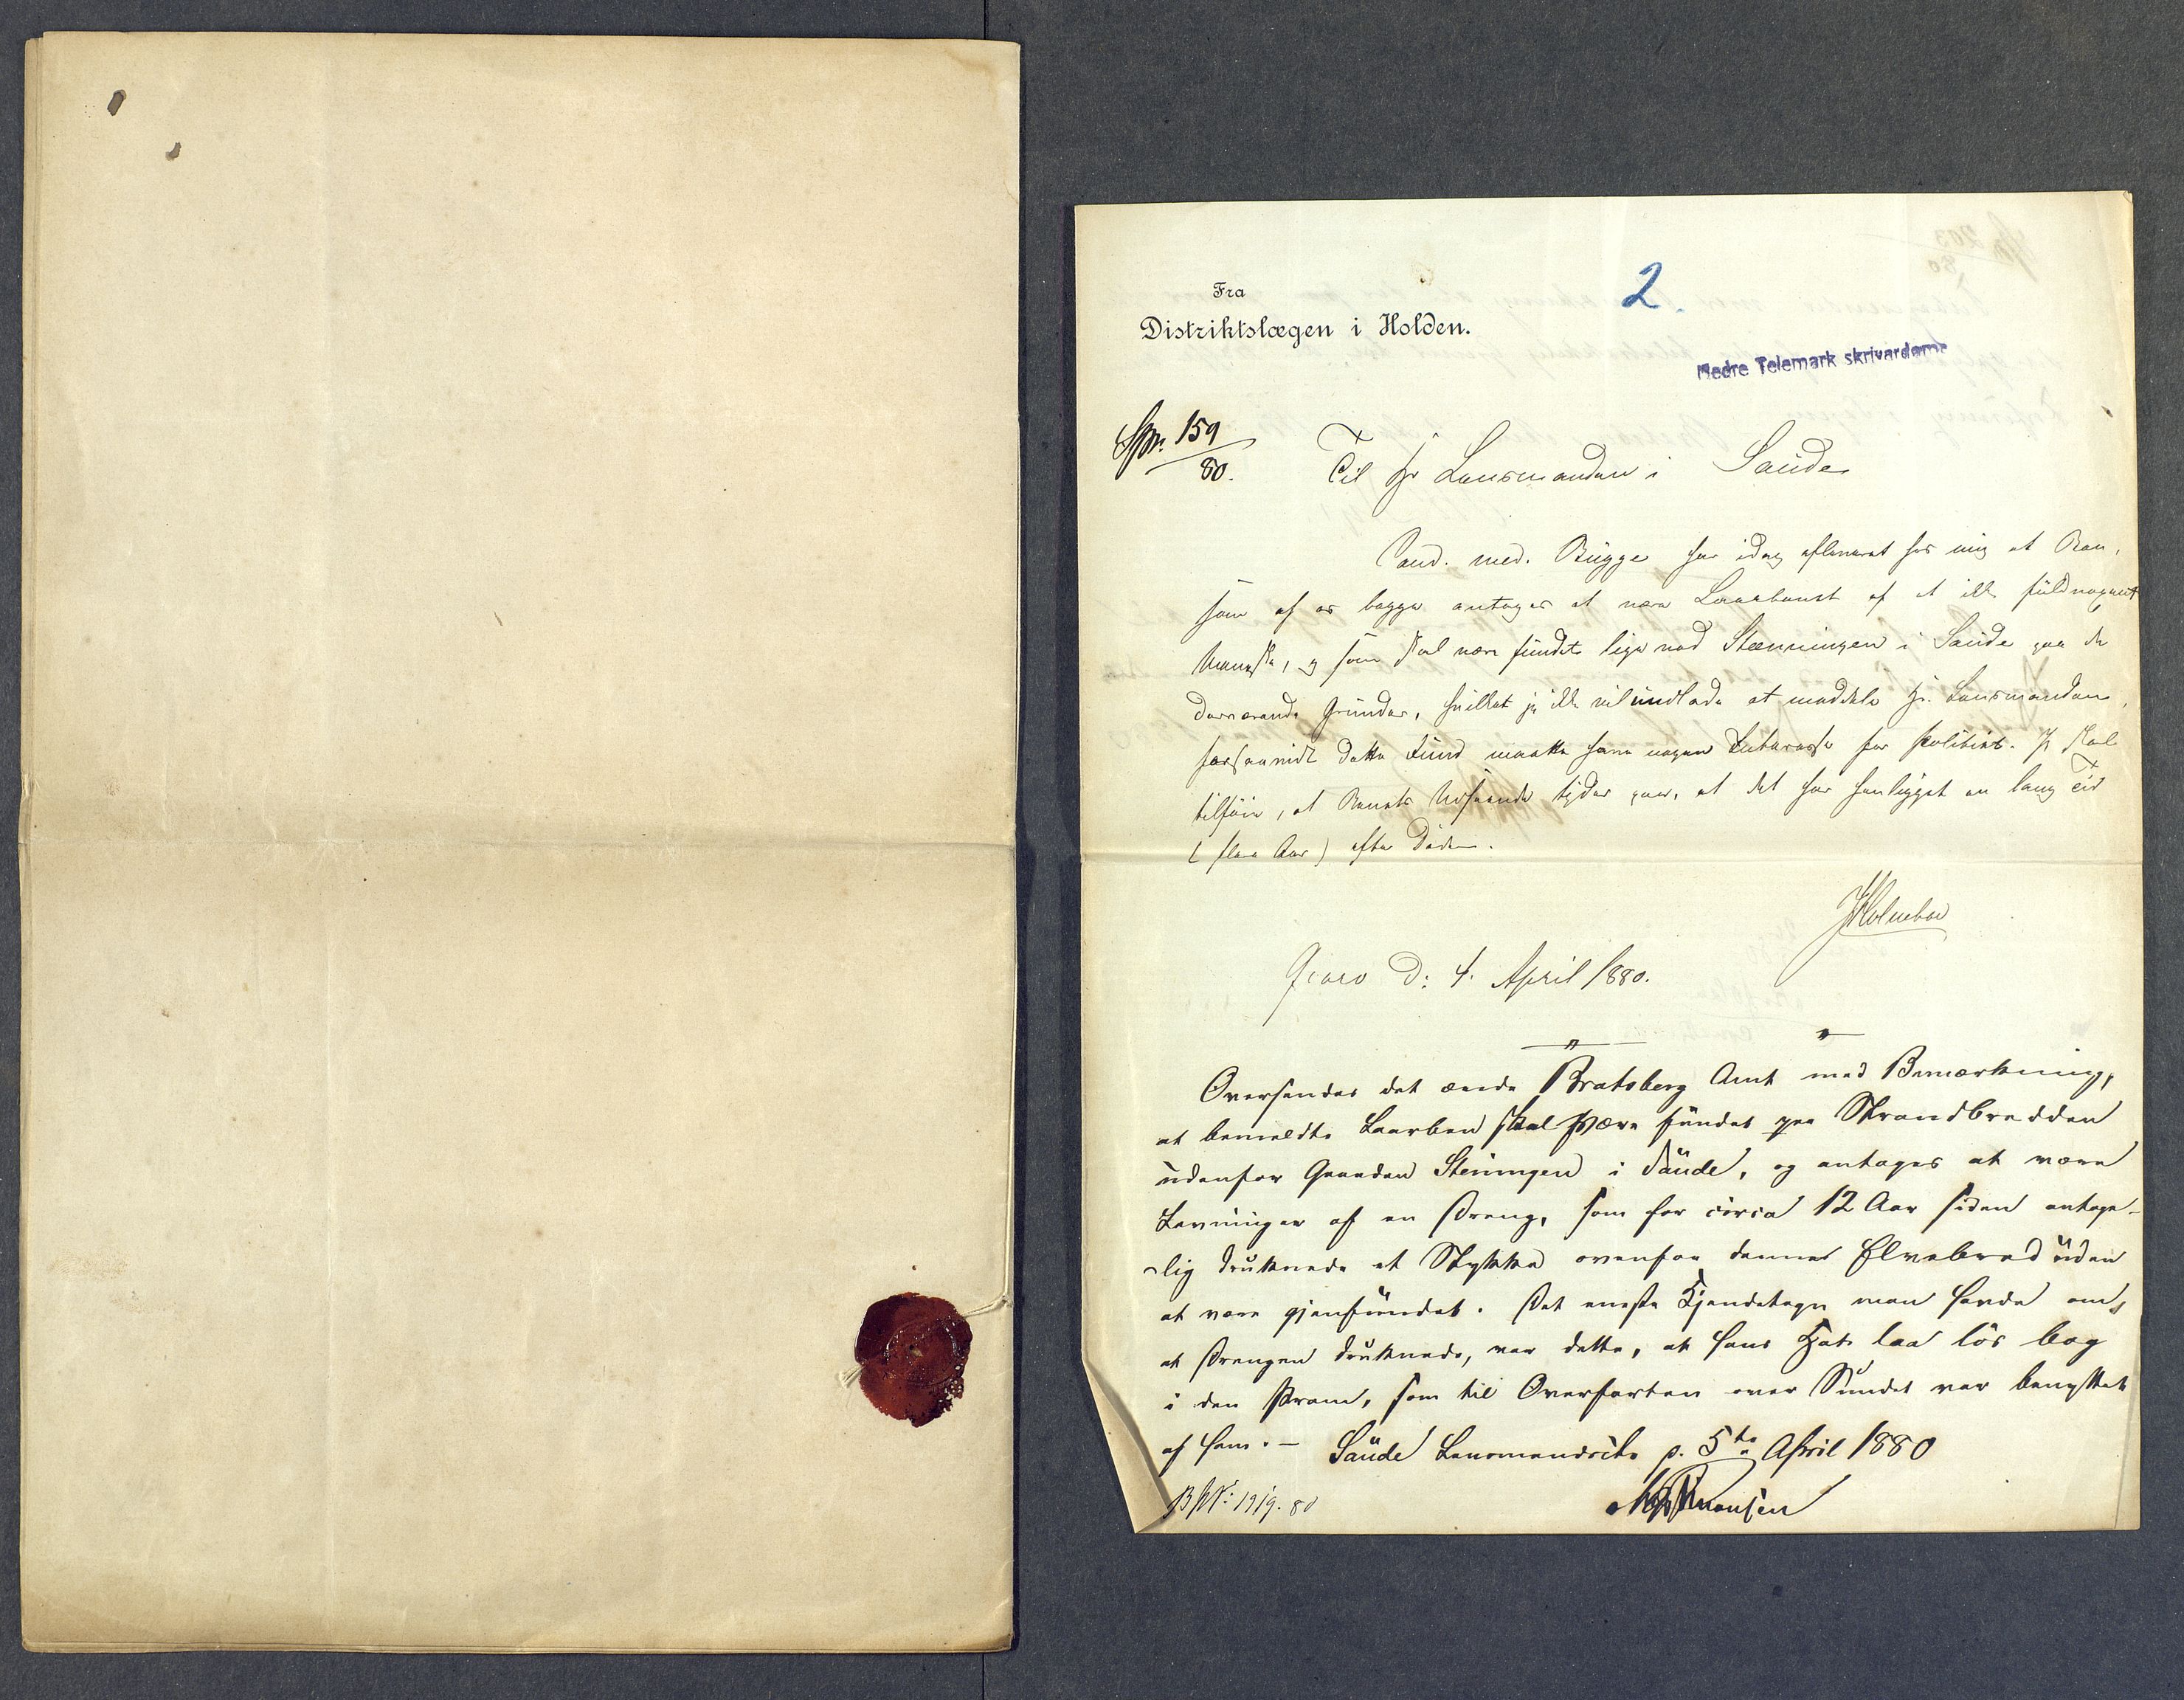 2.
Fra
Distriktslægen i Holden.
Nedre Telemark skrivardøme
Spr. 159
80.
Til Hr Lensmanden i Saude
Cand. med. Bugge har idag afleveret hos mig et Ben,
som af os begge antages at være Laarbenet af et ikke fuldvoxent
Menneske, og som skal være fundet lige ved Stenningen i Saude paa de
derværende Grunder, hvilket jeg ikke vil undlade at meddele Hr. Lensmanden,
forsaavidt dette Fund maatte have nogen Interesse for Politiet. Jeg skal
tilføie, at Benets Udseende tyder paa, at det har henligget en lang Tid
(flere Aar) efter Døden.
Holmboe
d: 4. April 1880.
Oversendes det ærede Bratsberg Amt med Bemærkning,
at bemeldte Laarben skal være fundet paa Strandbredden
udenfor Gaarden Steningen i Saude, og antages at være
Levninger af en Dreng, som for circa 12 Aar siden antage-
lig druknede et Stykke ovenfor denne Elvebred uden
at være gjenfundet. Det eneste Kjendetegn man havde om,
at Drengen druknede, var dette, at hans Hat laa løs bag
i den Pram, som til Overfarten over Sundet var benyttet
af ham. – Saude Lensmandsctr. d. 5te April 1880
B No: 1919. 80